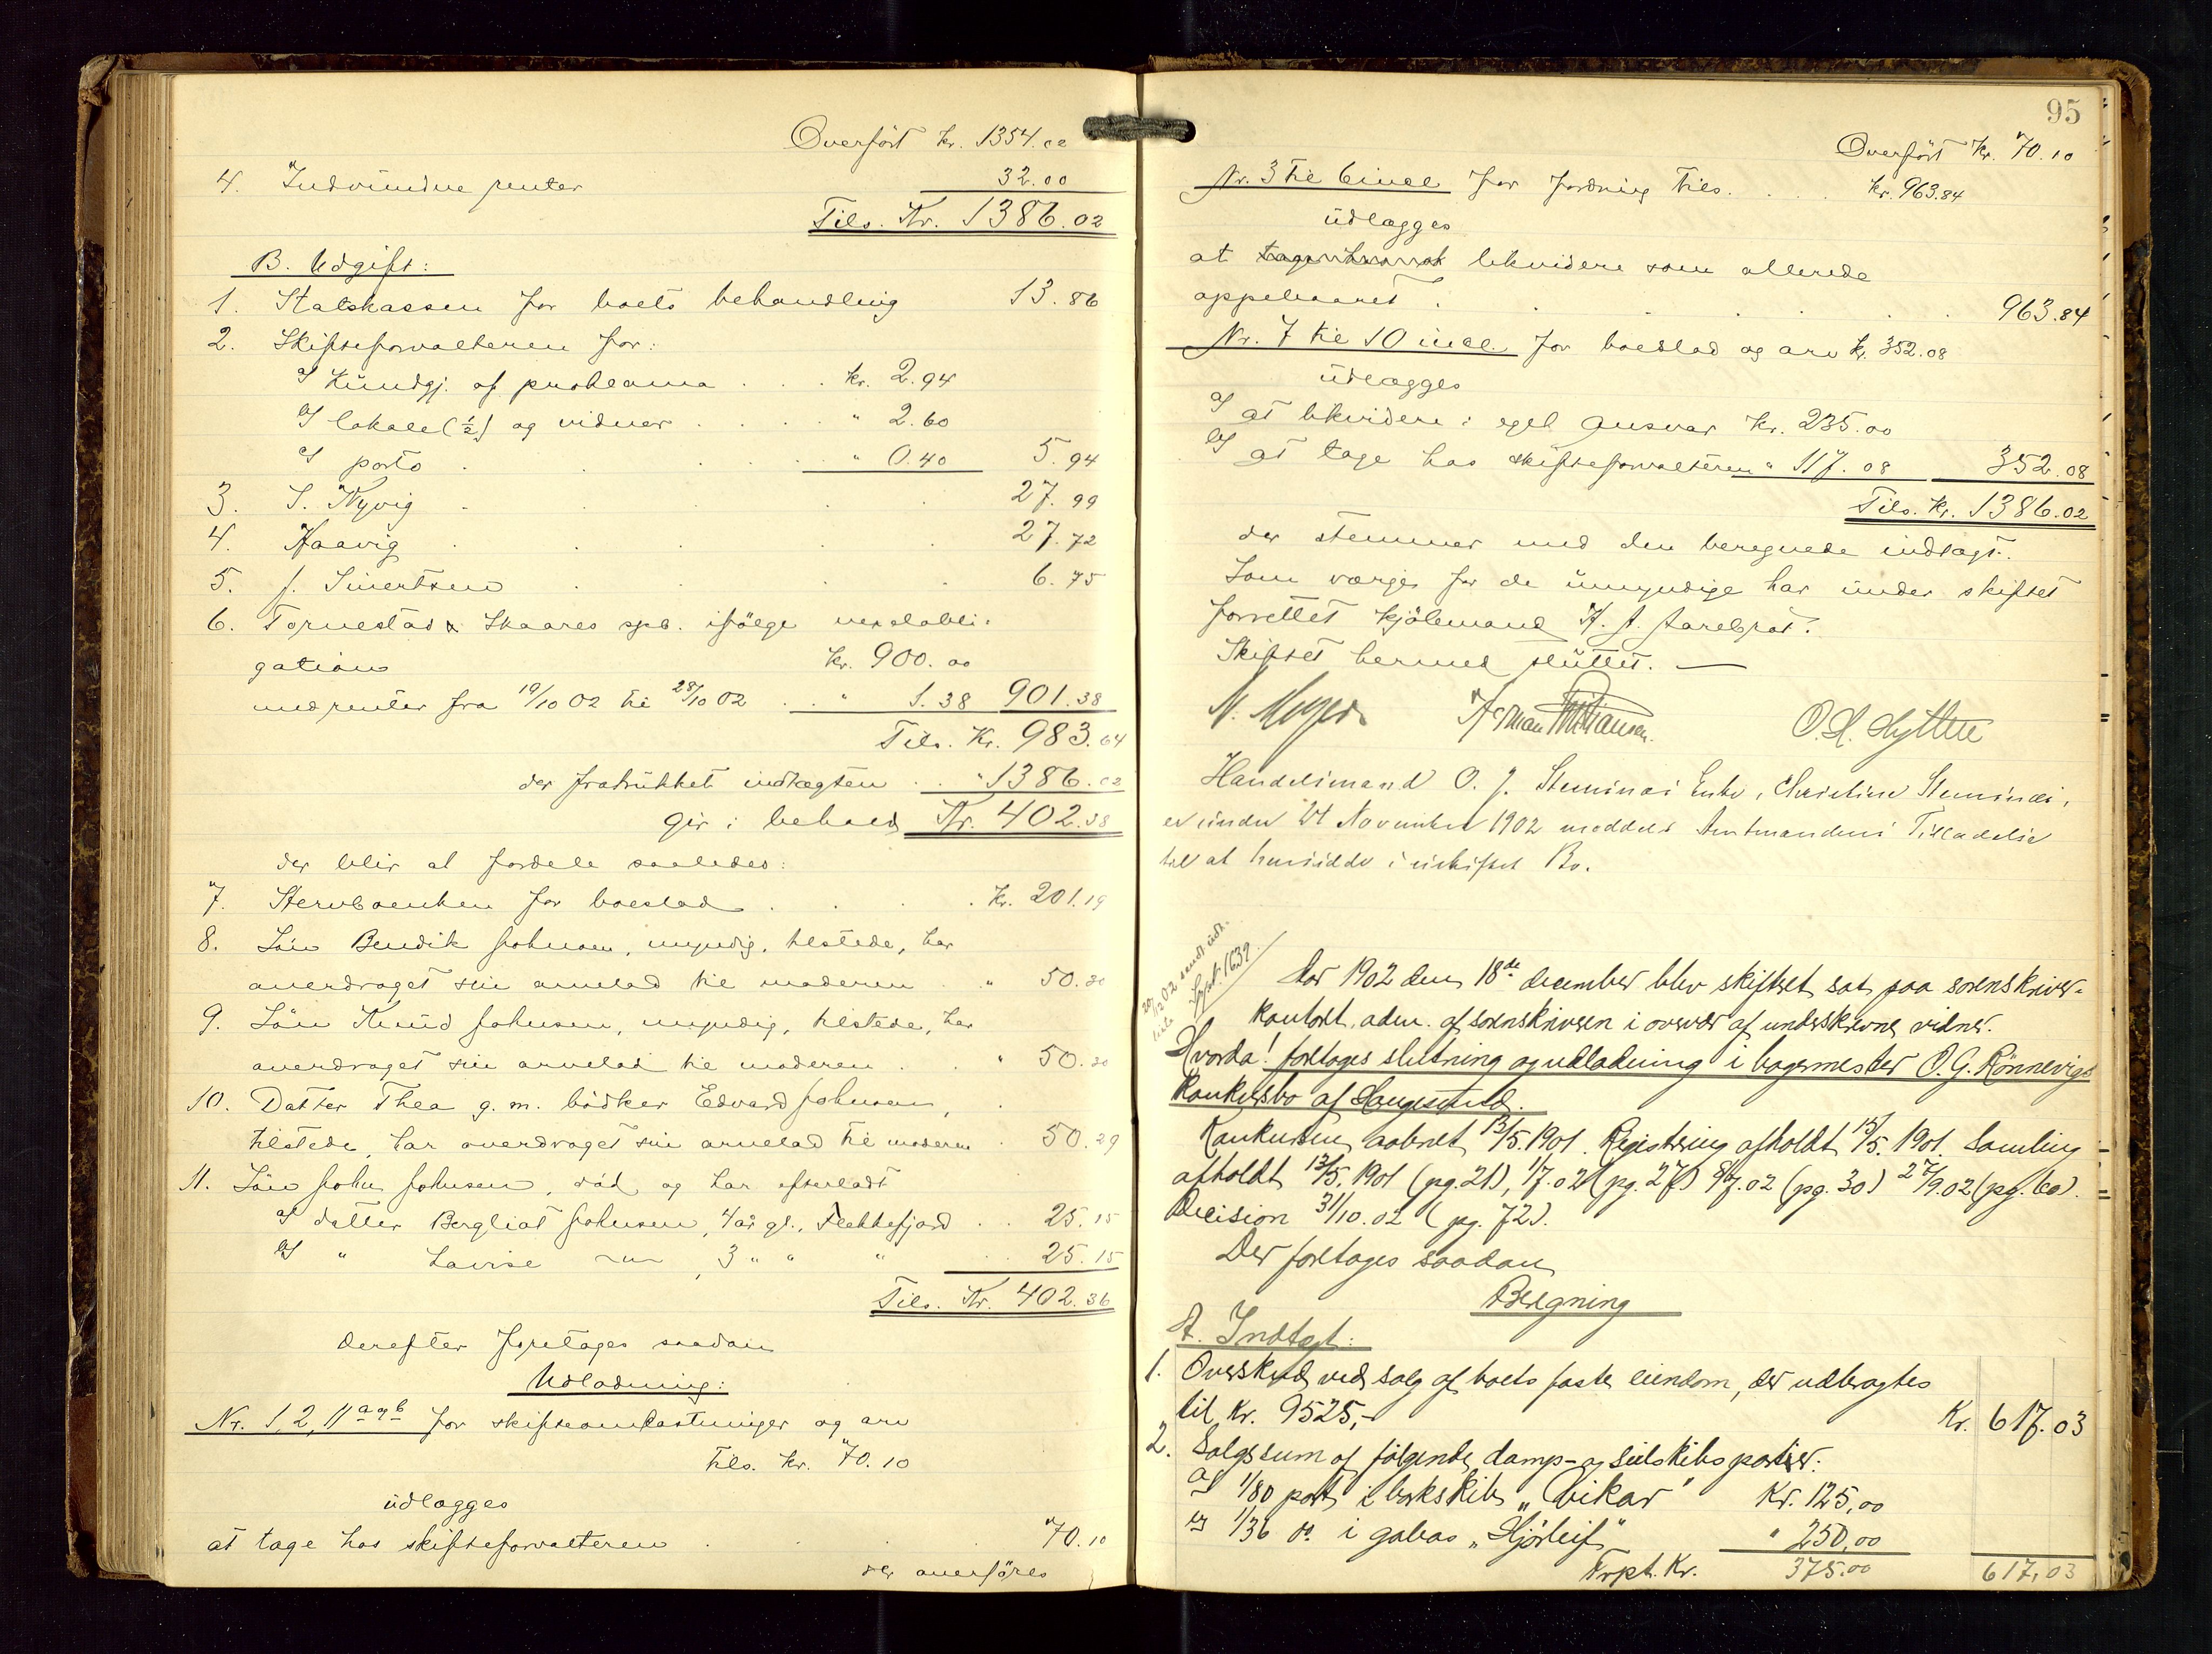 Overført kr. 1354.02
4. Indvundne renter 32.00
Tils. Kr. 1386.02
B. Udgift:
1. Statskassen for boets behandling 13.86
2. Skifteforvalteren for:
a) Kundgj. af proklama . . . kr. 2.94
b) lokale (1/2) og vidner . . . . " 2.60
c) porto . . . . " 0.40 5.94
3. S. Nyvig . . . 27.99
4. Haavig . . . . 27.72
5. J. Sivertsen . . . 6.75
6. Tornestad & Skaares spb. ifølge vexelobli-
gation kr. 900.00
med renter fra 19/10 02 til 28/10 02 . . " 1.38 901.38
Tils. Kr. 983.64
der fratrukket indtægten . . " 1386.02
gir i behold Kr. 402.38
der blir at fordele saaledes:
7. Stervboenken for boeslod . . . . Kr. 201.19
8. Søn Bendik Johnsen, myndig, tilstede, har
overdraget sin arvelod til moderen . " 50.30
9. Søn Knud Johnsen, myndig, tilstede, har
overdraget sin arvelod til moderen . . " 50.30
10. Datter Thea g. m. bødker Edvard Johnsen,
tilstede, har overdraget sin arvelod til moderen . 50.29
11. Søn John Johnsen, død og har efterladt
a) datter Bergliot Johnsen, 4 år gl., Flekkefjord . . 25.15
b) " Lovise — " — , 3 " " " . . 25.15
Tils. Kr. 402.36
Derefter foretages saadan
Udlodning:
Nr. 1, 2, 11 a og b for skifteomkostninger og arv
tils. kr. 70.10
udlægges
at tage hos skifteforvalteren . . . 70.10
der overføres
95
Overført Kr. 70.10
Nr. 3 til 6 incl. for fordring tils. . . . kr. 963.84
udlægges
at likvidere som allerede
oppebaaret . . . . . 963.84
Nr. 7 til 10 incl. for boeslod og arv kr. 352.08
udlægges
a) at likvidere i eget ansvar kr. 235.00
b) at tage hos skifteforvalteren " 117.08 352.08
Tils. Kr. 1386.02
der stemmer med den beregnede indtægt.
Som værge for de umyndige har under skiftet
forrettet kjøbmand
Skiftet hermed sluttet. —
N. Meyer Herman O. H. Hytten
Handelsmand O. J. Steminæs Enke, Christine Steminæs,
er under 24 November 1902 meddelt Amtmandens Tilladelse
til at hensidde i uskiftet Bo.
Aar 1902 den 18de december blev skifteret sat paa sorenskriver-
kontoret, adm. af sorenskriveren i overvær af underskrevne vidner.
Hvorda! foretages slutning og udlodning i bagermester O. G. Rønnevigs
konkursbo af Haugesund.
Konkursen aabnet 13/5. 1901. Registrering afholdt 15/5. 1901. Samling
afholdt 13/5. 1901 (pg. 21), 1/7. 02 (pg. 27) 8/7. 02 (pg. 30) 27/9. 02 (pg. 60).
Decision 31/10. 02 (pg. 72).
Der foretages saadan
Beregning
A. Indtægt:
1. Overskud ved salg af boets faste eiendom, der udbragtes
til Kr. 9525,- Kr. 617.03
2. Salgssum af følgende damp- og seilskibsparter:
a) 1/80 part i barkskib „Vikar" Kr. 125,00
b) 1/36 do. i galeas „Hjørleif" " 250,00
Trpt. Kr. 375.00 617,03